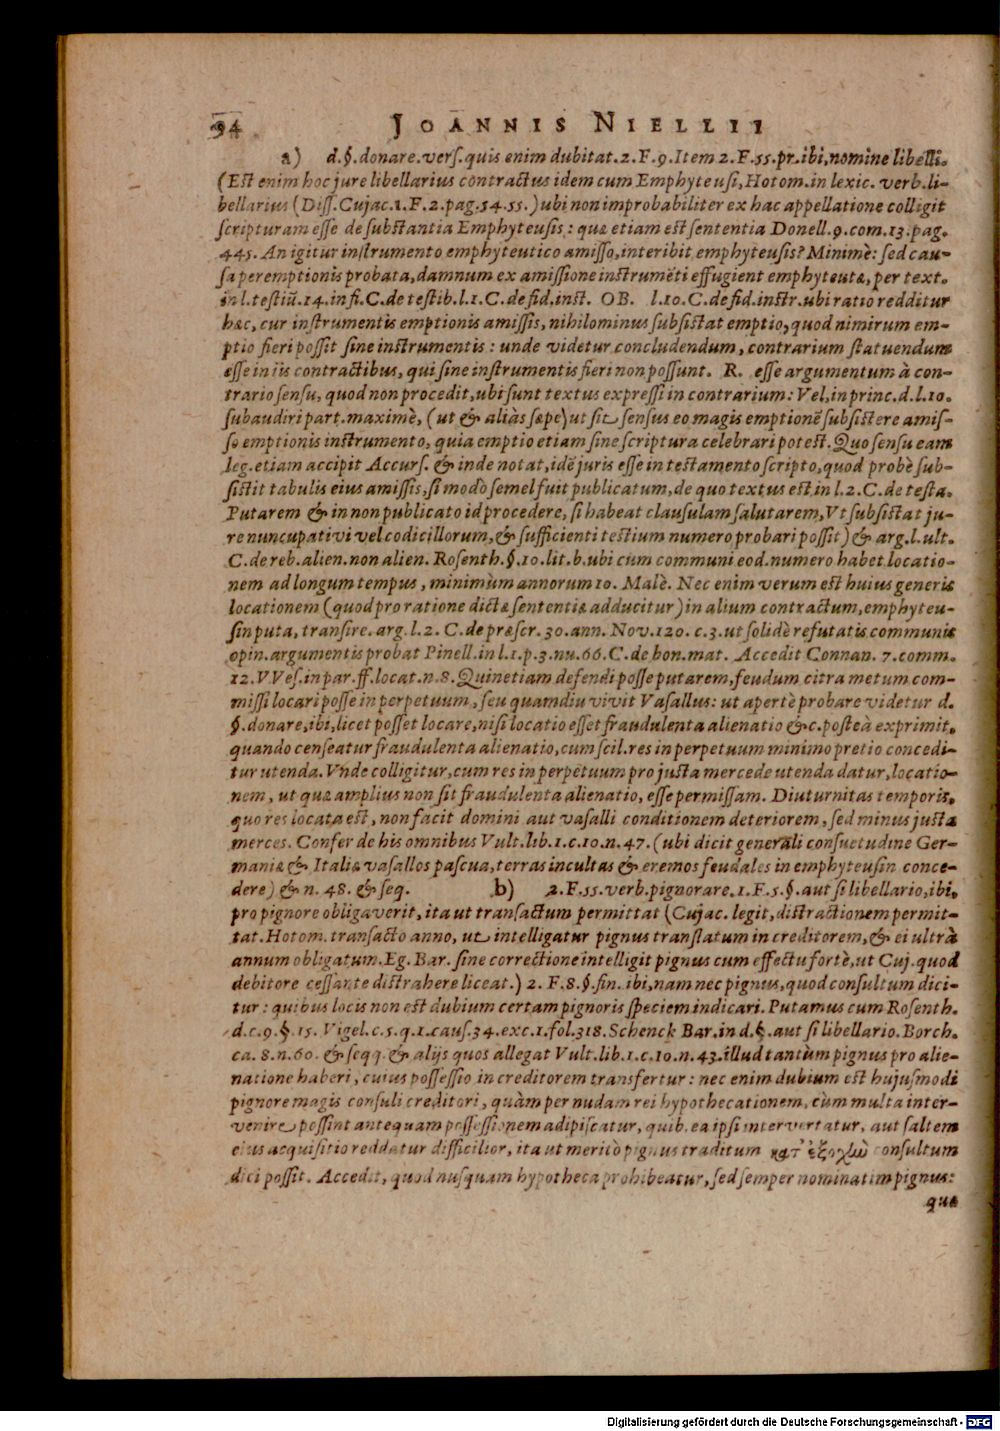 94 JOANNIS NIELLII
a) d.§.donare.vers.quis enim dubitat.2.F.9.Item 2.F.55.pr.ibi,nomine libelli.
(Est enim hoc jure libellarius contractus idem cum Emphyteusi,Hotom.in lexic. verb.li-
bellarius (Diss.Cujac.1.F.2.pag.54.55.) ubi non improbabiliter ex hac appellatione colligit
scripturam esse de substantia Emphyteusis: quæ etiam est sententia Donell.9.com.13.pag.
445. An igitur instrumento emphyteutico amisso,interibit emphyteusis? Minimè: sed cau-
sa peremptionis probata,damnum ex amissione instrumẽti effugient emphyteutæ, per text.
in l.testiũ.14.in fi.C.de testib.l.1.C.de fid.inst. OB. l.10.C.de fid.instr.ubi ratio redditur
hæc, cur instrumentis emptionis amissis, nihilominus subsistat emptio, quod nimirum em-
ptio fieri possit sine instrumentis: unde videtur concludendum, contrarium statuendum
esse in iis contractibus, qui sine instrumentis fieri non possunt. R. esse argumentum à con-
trario sensu, quod non procedit,ubi sunt textus expressi in contrarium: Vel,in princ.d.l.10.
subaudiri part.maximè, (ut & aliàs sæpe) ut sit sensus eo magis emptionẽ subsistere amis-
so emptionis instrumento, quia emptio etiam sine scriptura celebrari potest. Quo sensu eam
leg.etiam accipit Accurs. & inde notat,idẽ juris esse in testamento scripto,quod probè sub-
sistit tabulis eius amissis,si modò semel fuit publicatum,de quo textus est in l.2.C.de testa.
Putarem & in non publicato id procedere, si habeat clausulam salutarem,Vt subsistat ju-
re nuncupativi vel codicillorum,& sufficienti testium numero probari possit) & arg.l.ult.
C.de reb.alien.non alien. Rosenth.§.10.lit.b.ubi cum communi eod.numero habet locatio-
nem ad longum tempus, minimùm annorum 10. Malè. Nec enim verum est huius generis
locationem (quod pro ratione dictæ sententiæ adducitur) in alium contractum,emphyteu-
sin puta, transire. arg.l.2. C.de præscr.30.ann. Nov.120. c.3.ut solidè refutatis communis
opin.argumentis probat Pinell.in l.1.p.3.nu.66.C.de bon.mat. Accedit Connan. 7.comm.
12.VVes.in par.ff.locat.n.8. Quinetiam defendi posse putarem,feudum citra metum com-
missi locari posse in perpetuum, seu quamdiu vivit Vasallus: ut apertè probare videtur d.
§.donare,ibi,licet posset locare,nisi locatio esset fraudulenta alienatio &c.posteà exprimit,
quando censeatur fraudulenta alienatio,cum scil.res in perpetuum minimo pretio concedi-
tur utenda. Vnde colligitur,cum res in perpetuum pro justa mercede utenda datur,locatio-
nem, ut quæ amplius non sit fraudulenta alienatio, esse permissam. Diuturnitas temporis,
quo res locata est, non facit domini aut vasalli conditionem deteriorem, sed minus justa
merces. Confer de his omnibus Vult.lib.1.c.10.n.47. (ubi dicit generali consuetudine Ger-
maniæ & Italiæ vasallos pascua,terras incultas & eremos feudales in emphyteusin conce-
dere) & n. 48. & seq. b) 2.F.55.verb.pignorare.1.F.5.§.aut si libellario,ibi,
pro pignore obligaverit, ita ut transactum permittat (Cujac.legit,distractionem permit-
tat. Hotom.transacto anno, ut intelligatur pignus translatum in creditorem,& ei ultrà
annum obligatum.Eg.Bar. sine correctione intelligit pignus cum effectu fortè,ut Cuj.quod
debitore cessante distrahere liceat.) 2. F.8.§.fin.ibi,nam nec pignus,quod consultum dici-
tur: quibus locis non est dubium certam pignoris speciem indicari. Putamus cum Rosenth.
d.c.9.§.15. Vigel.c.5.q.1.caus.34.exc.1.fol.318.Schenck Bar.in d.§.aut si libellario.Borch.
ca. 8.n.60. & seqq. & alijs quos allegat Vult.lib.1.c.10.n.43.illud tantùm pignus pro alie-
natione haberi, cuius possessio in creditorem transfertur: nec enim dubium est hujusmodi
pignore magis consuli creditori, quàm per nudam rei hypothecationem, cùm multa inter-
venire possint antequam possessionem adipiscatur, quib.ea ipsi intervertatur, aut saltem
eius acquisitio reddatur difficilior, ita ut meritò pignus traditum κατ' ἐξοχὼ consultum
dici possit. Accedit, quod nusquam hypotheca prohibeatur, sed semper nominatim pignus:
quæ
Digitalisierung gefördert durch die Deutsche Forschungsgemeinschaft - DFG